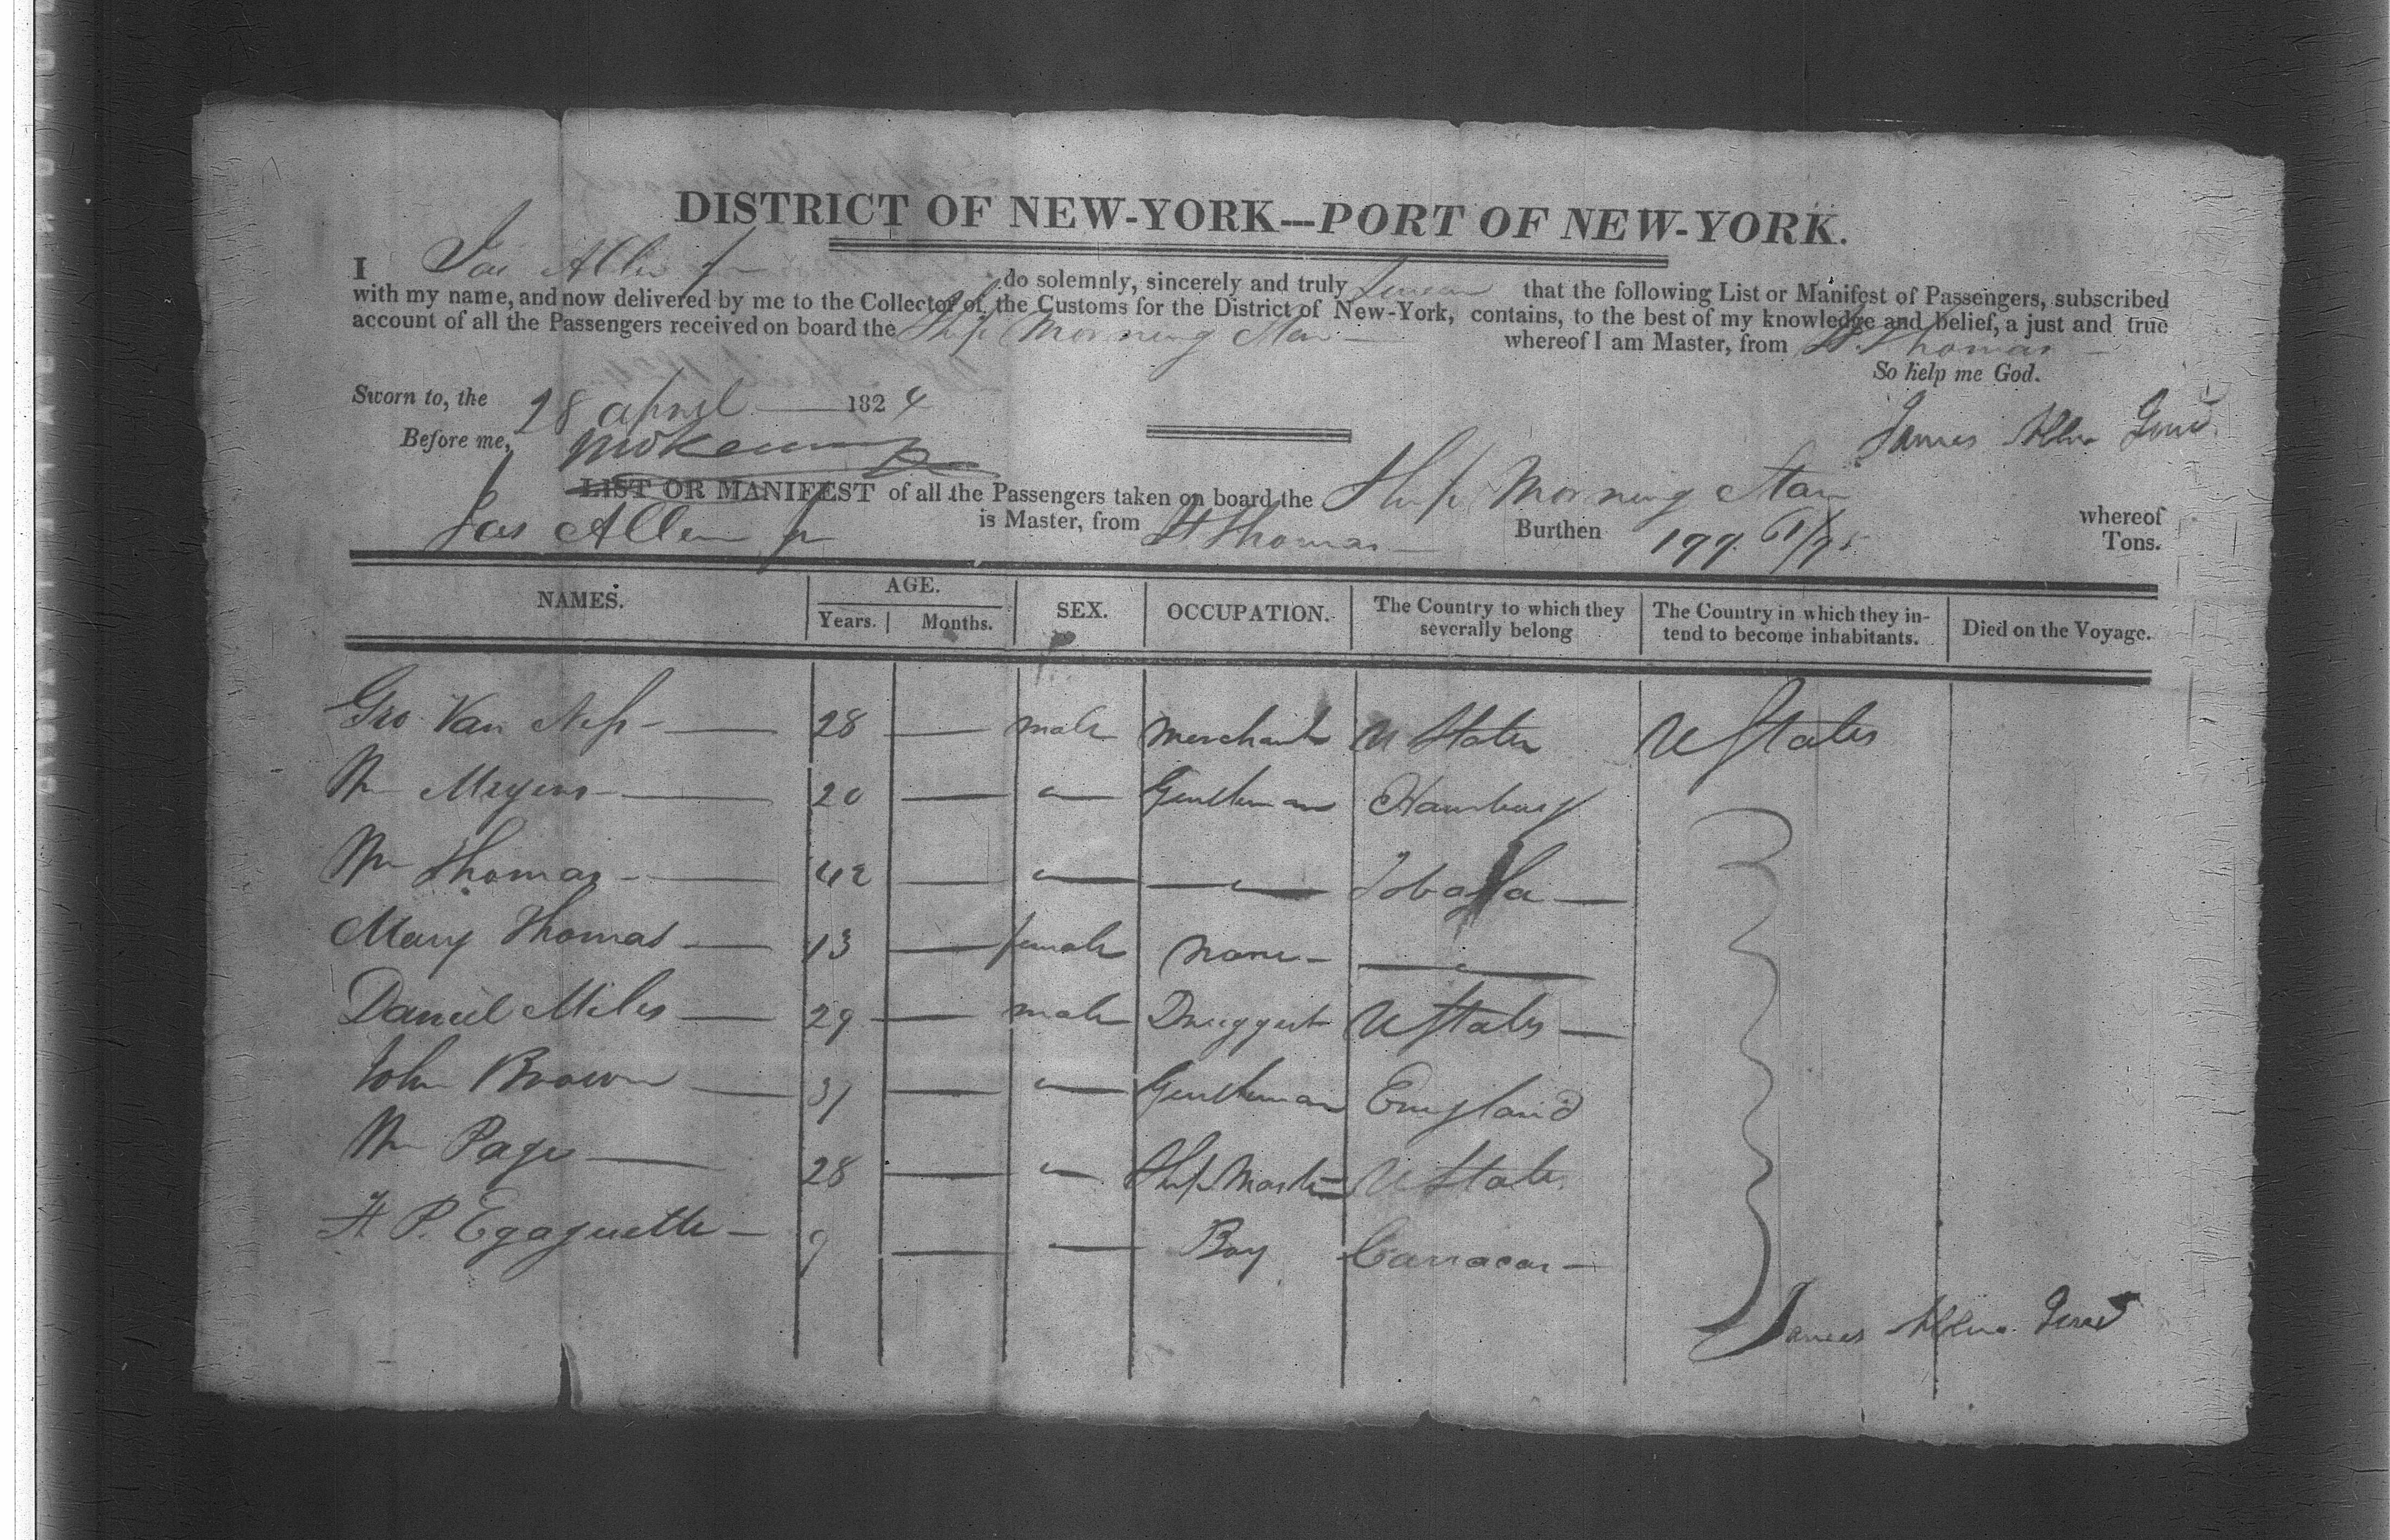 DISTRICT OF NEW-YORK---PORT OF NEW-YORK.
I Jas Allen Jr do solemnly, sincerely and truly swear that the following List or Manifest of Passengers, subscribed
with my name, and now delivered by me to the Collector of the Customs for the District of New-York, contains, to the best of my knowledge and belief, a just and true
account of all the Passengers received on board the Ship Morning Star whereof I am Master, from St Thomas
So help me God.
Sworn to, the 28 april 1824
Before me, James Allen
LIST OR MANIFEST of all the Passengers taken on board the Ship Morning Star whereof
Jas Allen Jr is Master, from St Thomas Burthen 199 61/95 Tons.
NAMES. AGE. Years. Months. SEX. OCCUPATION. The Country to which they severally belong The Country in which they intend to become inhabitants. Died on the Voyage.
Geo Van Ness — 28 — male merchant U States U States
Wm Meyers — 20 — " Gentleman Hamburg
Wm Thomas — 42 — " " Tobago —
Mary Thomas — 13 — female none — "
Daniel Miles — 29 — male Druggist U States —
John Brown — 31 — " Gentleman England
Wm Page — 28 — " Ship Master U States
P. Egaguette — 9 — — Boy Carracas —
James Allen